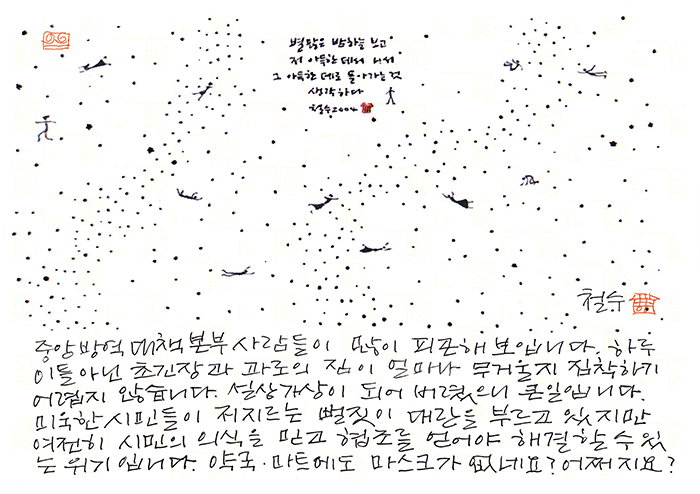 별 많은 밤하늘 보고
저 아득한 데서 나서
그 아득한 데로 돌아가는 것
생각하다
철수 2004
철수
중앙방역대책본부 사람들이 많이 피곤해 보입니다. 하루
이틀 아닌 초긴장과 과로의 짐이 얼마나 무거울지 짐작하기
어렵지 않습니다. 설상가상이 되어 버렸으니 큰일입니다.
미욱한 시민들이 저지르는 뻘짓이 대란을 부르고 있지만
여전히 시민의 의식을 믿고 협조를 얻어야 해결할 수 있
는 위기입니다. 약국·마트에도 마스크가 없네요? 어쩌지요?